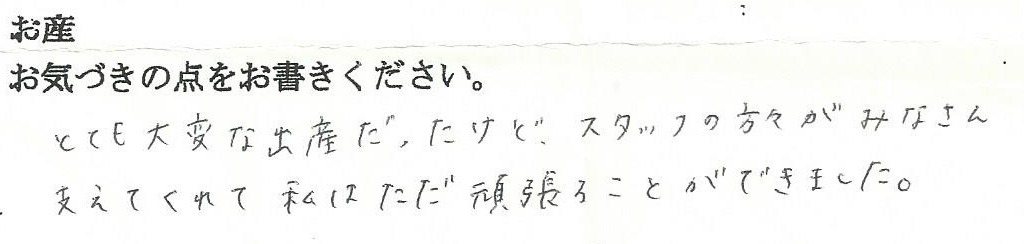 お産
お気づきの点をお書きください。
とても大変な出産だったけど、スタッフの方々がみなさん
支えてくれて私はただ頑張ることができました。